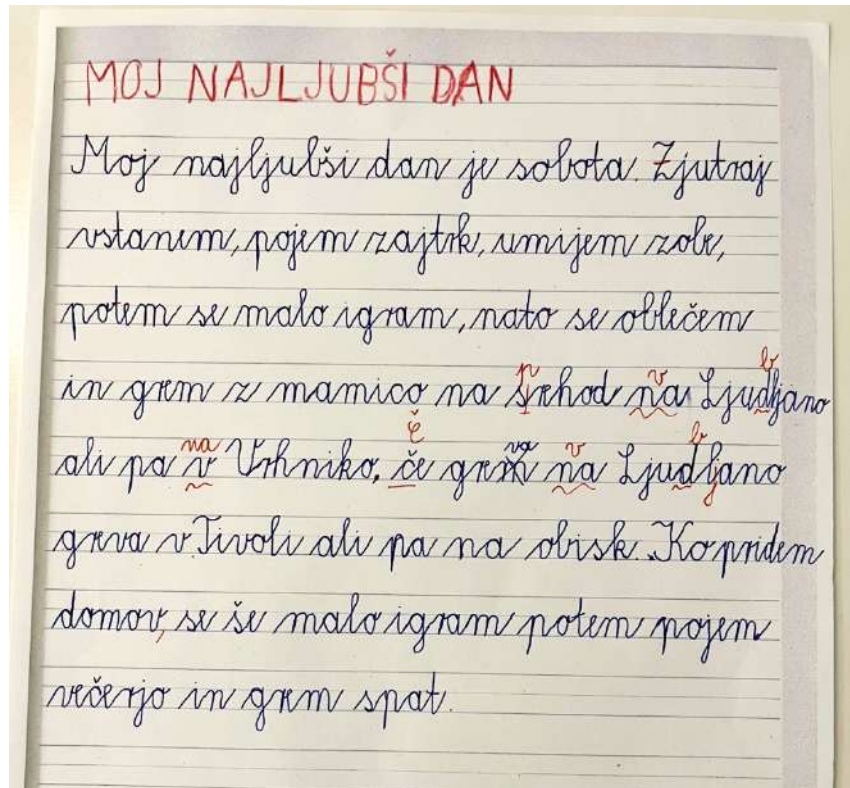 MOJ NAJLJUBŠI DAN
Moj najljubši dan je sobota. Zjutraj
vstanem, pojem zajtrk, umijem zobe,
potem se malo igram, nato se oblečem
p v b
in grem z mamico na srehod na Ljudljano
na Č va v b
ali pa v Vrhniko. če grem na Ljudljano
greva v Tivoli ali pa na obisk. Ko pridem
domov, se še malo igram potem pojem
večerjo in grem spat.